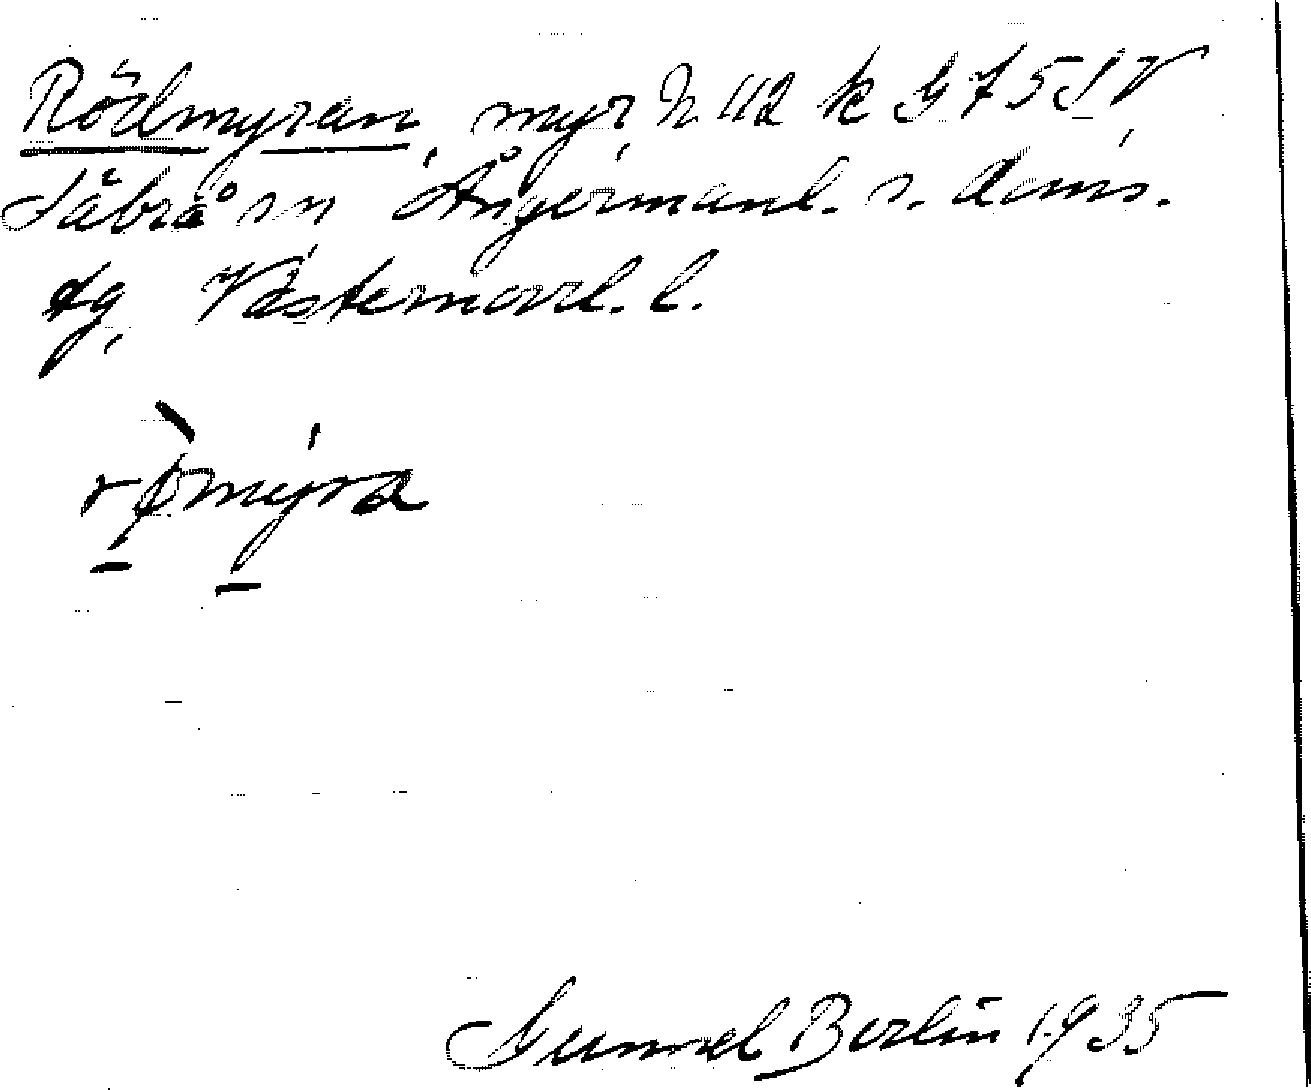 Rödmyran, myr, h 112 k G 7 5 SV
Säbrå sn Ångermanl. s. doms.
tg, Västernorrl. l.
rømyra
Gunnel Berlin 1935